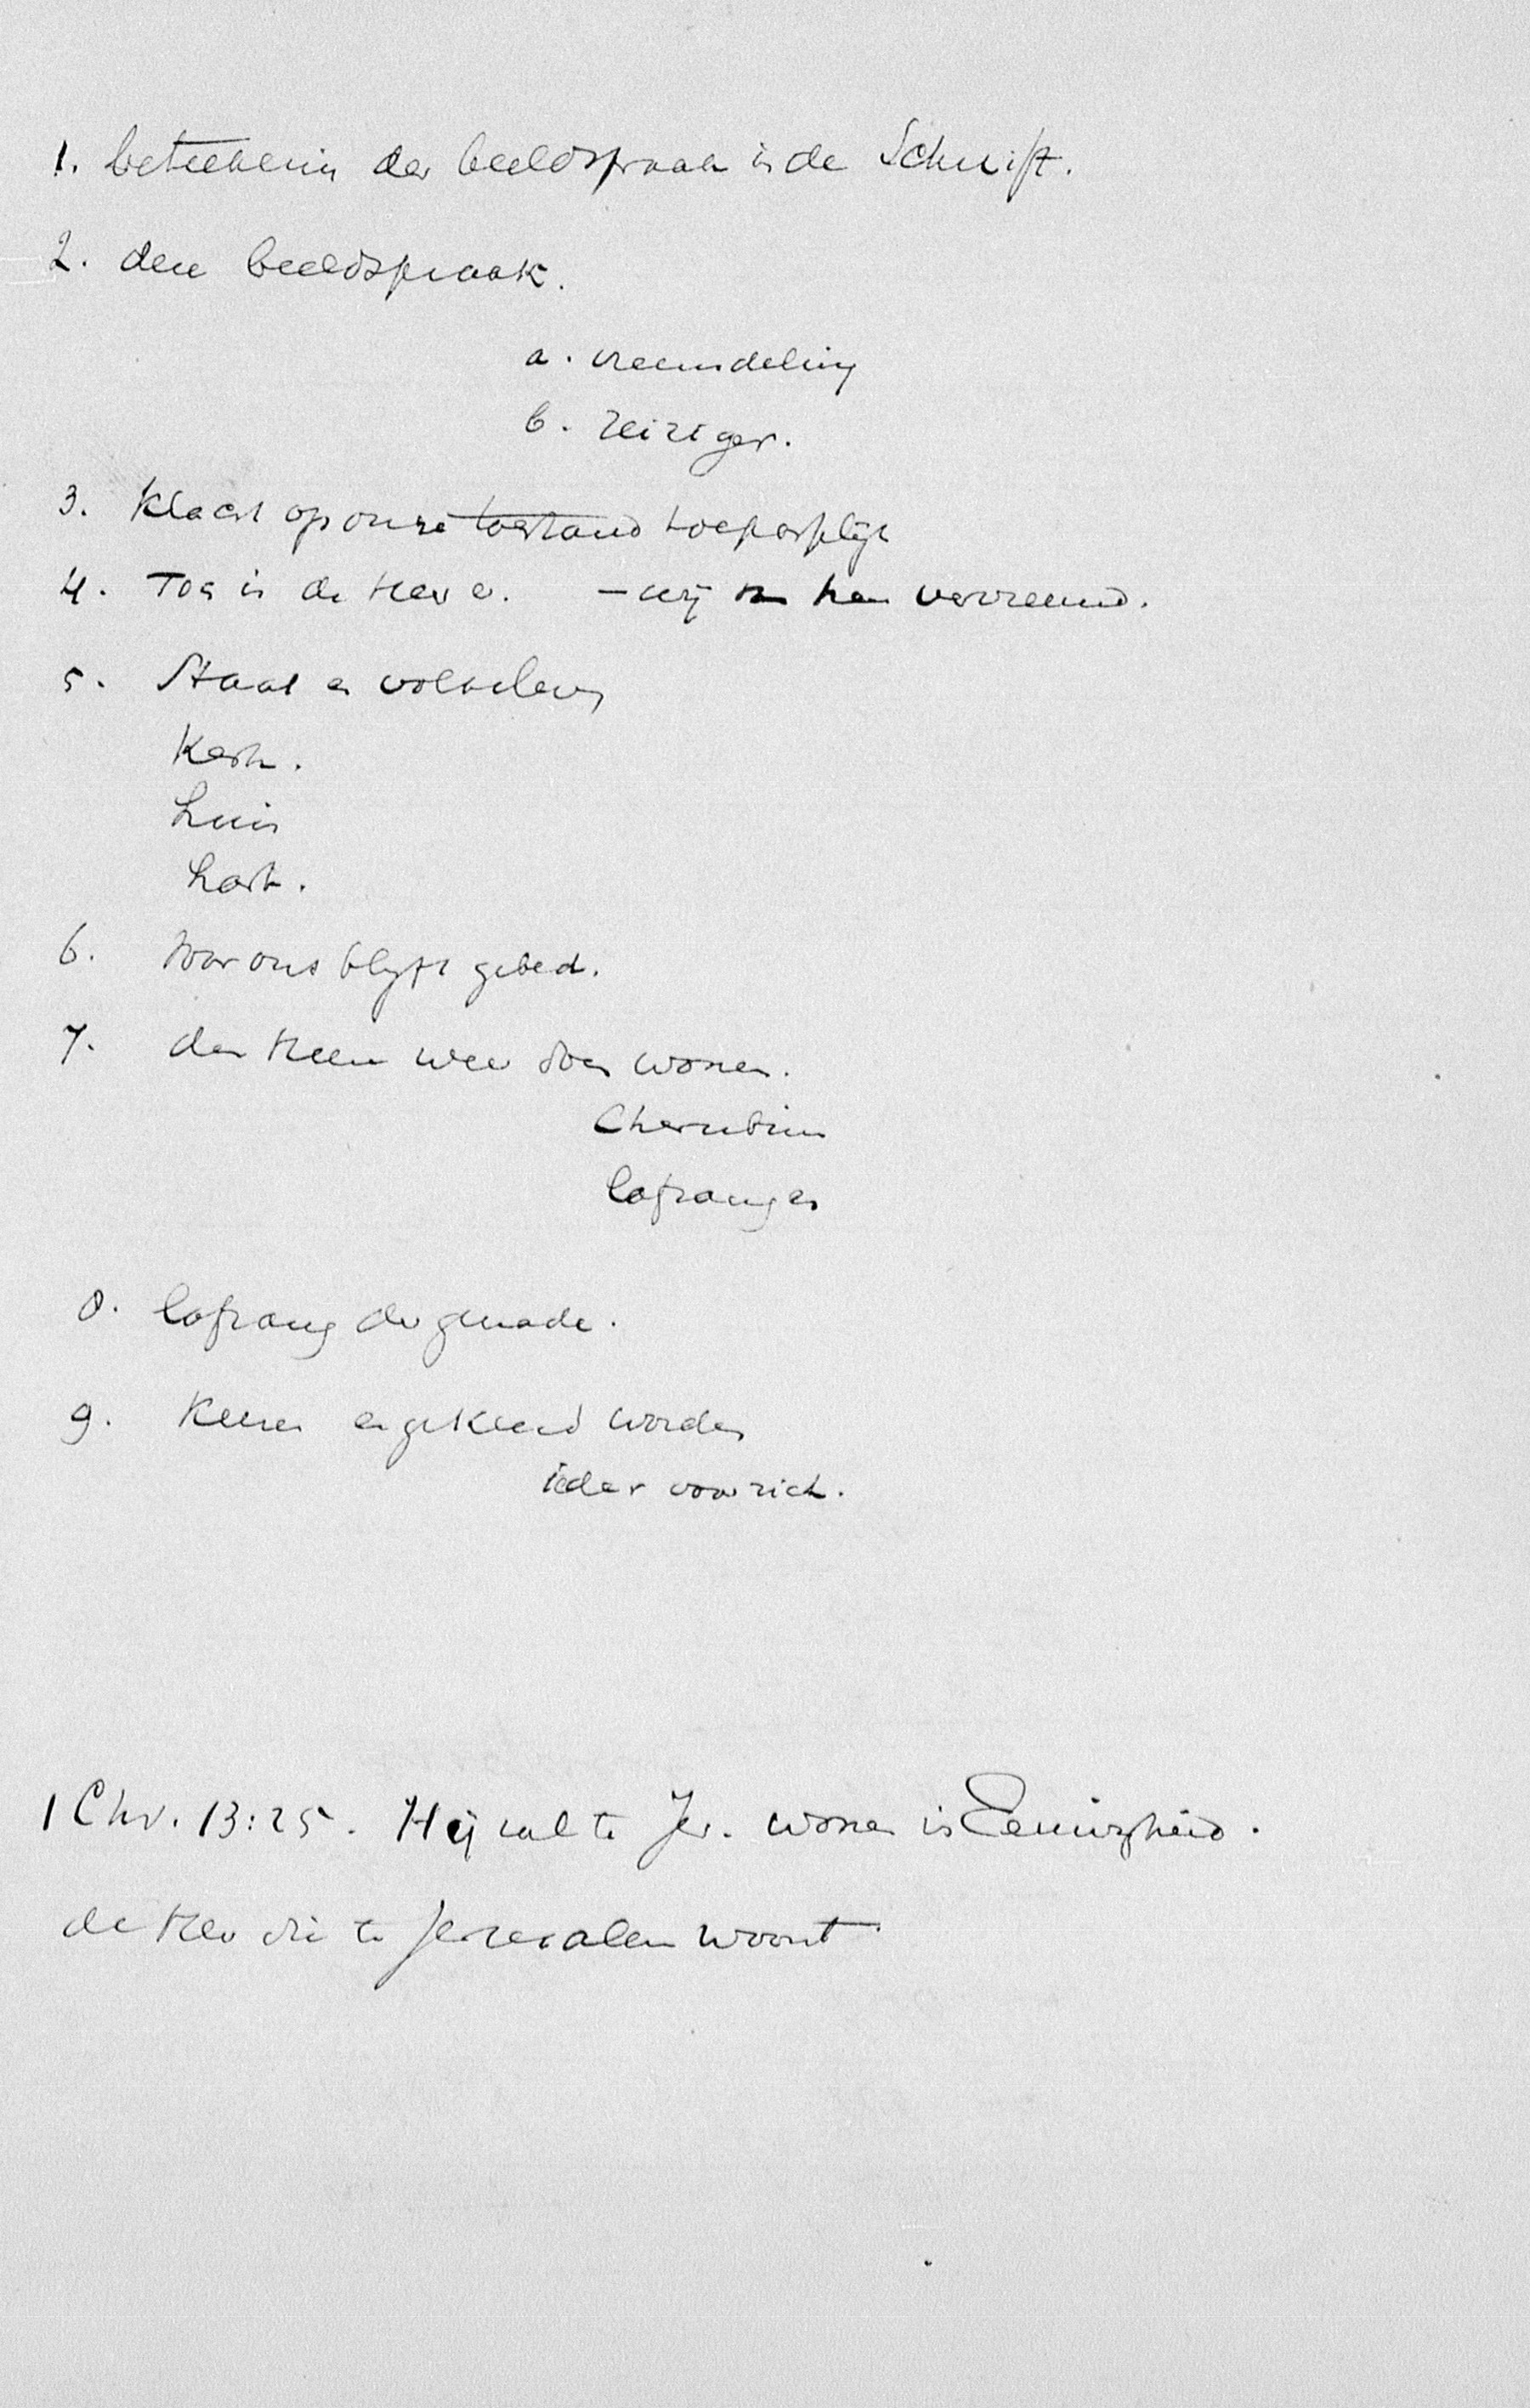 1. beteekenis der beeldspraak in de Schrift.
2. deze beeldspraak.
a. vreemdeling
b. reiziger.
3. Klacht op onze toestand toepasselijk
4. Toch is de Heer er. - wij van hem vervreemd.
5. Staat en volksleven
Kerk.
huis
hart.
6. Voor ons blijft gebed.
7. den Heere weer doen wonen.
Cherubim
lofzangen
8. lofzang der genade.
9. Kennen en gekend worden
ieder voor zich.
1 Chr. 13:25. Hij zal te Jer. wonen in Eeuwigheid.
de Heer die te Jeruzalem woont